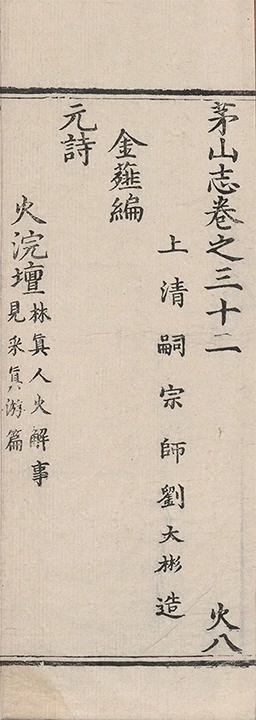 茅山志卷之三十二 火八
上清嗣宗師劉大彬造
金薤編
元詩
火浣壇 林真人火解事
見采真游篇